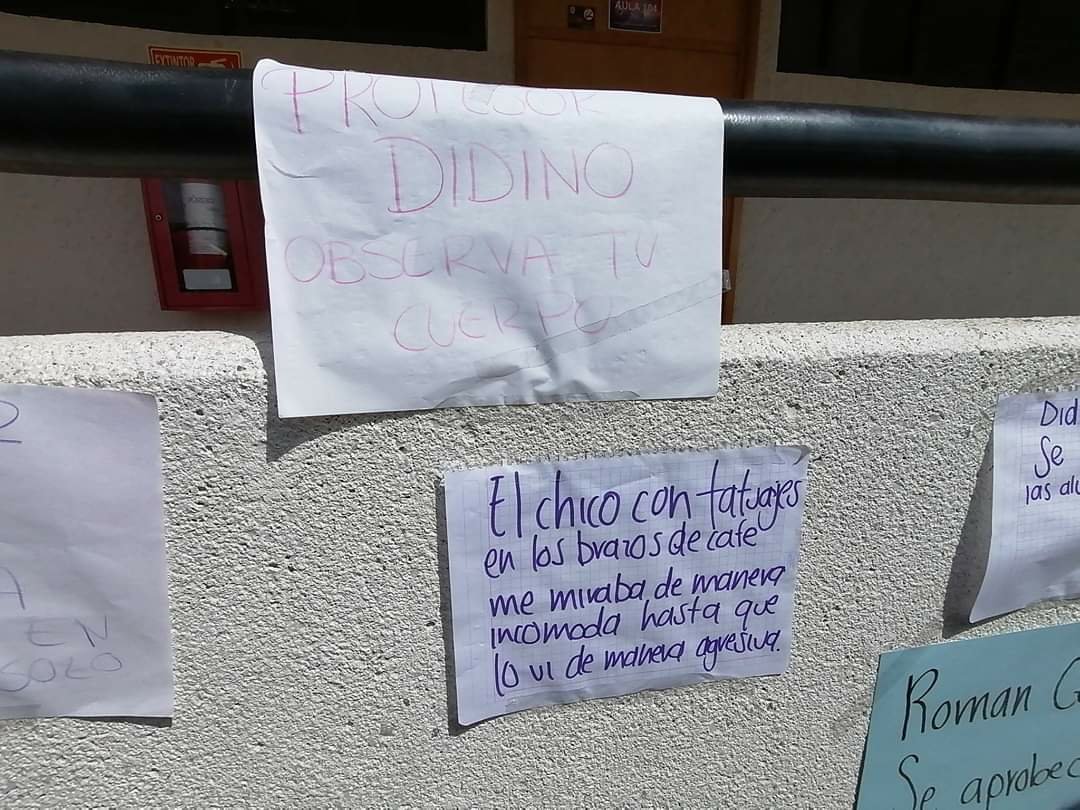 AULA 104
EXTINTOR
PROFESOR
DIDINO
OBSERVA TU
CUERPO
El chico con tatuajes
en los brazos de cafe
me miraba de manera
incomoda hasta que
lo vi de manera agresiva.
A
EN
SOLO
Did
Se
las alu
Roman
Se aprobec